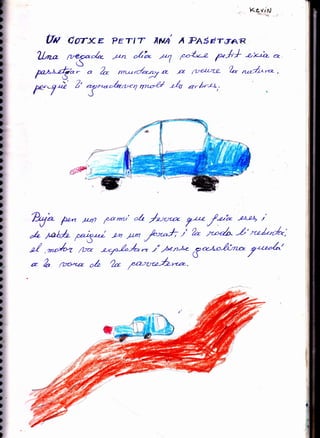 KEVIN
UN COTXE PETIT ANÀ A PASETJAR
Una vegada un dia un cotxe petit eixia a
a la muntanya a veure la natura,
perquè li agradaven molt els arbres.
Pujà per un camí de terra que feia eses, i
de sobte caigué en un forat; i la roda li
el motor va explotar i sense gasolina quedà
a la vora de la